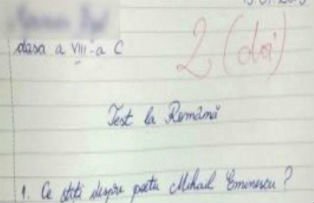 clasa a VIII-a C
2 (doi)
Test la Română
1. Ce știți despre poetu Mihail Eminescu?